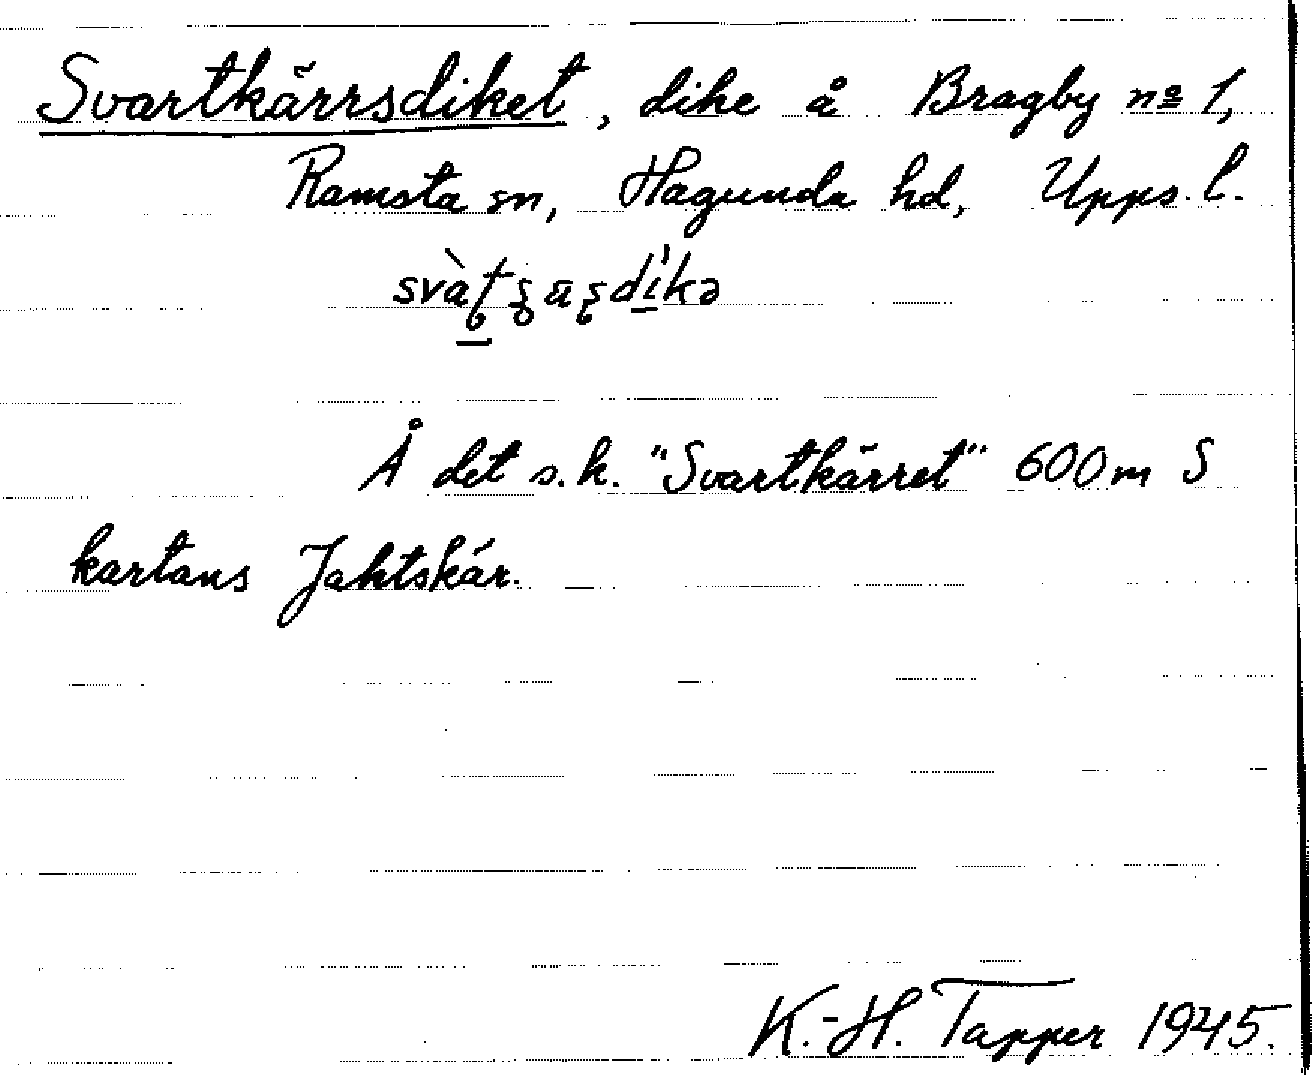 Svartkärrsdiket, dike å Bragby nº 1,
Ramsta sn, Hagunda hd, Upps. l.
Å det s.k. "Svartkärret" 600 m S
kartans Jaktskär.
K.-H. Tapper 1945.